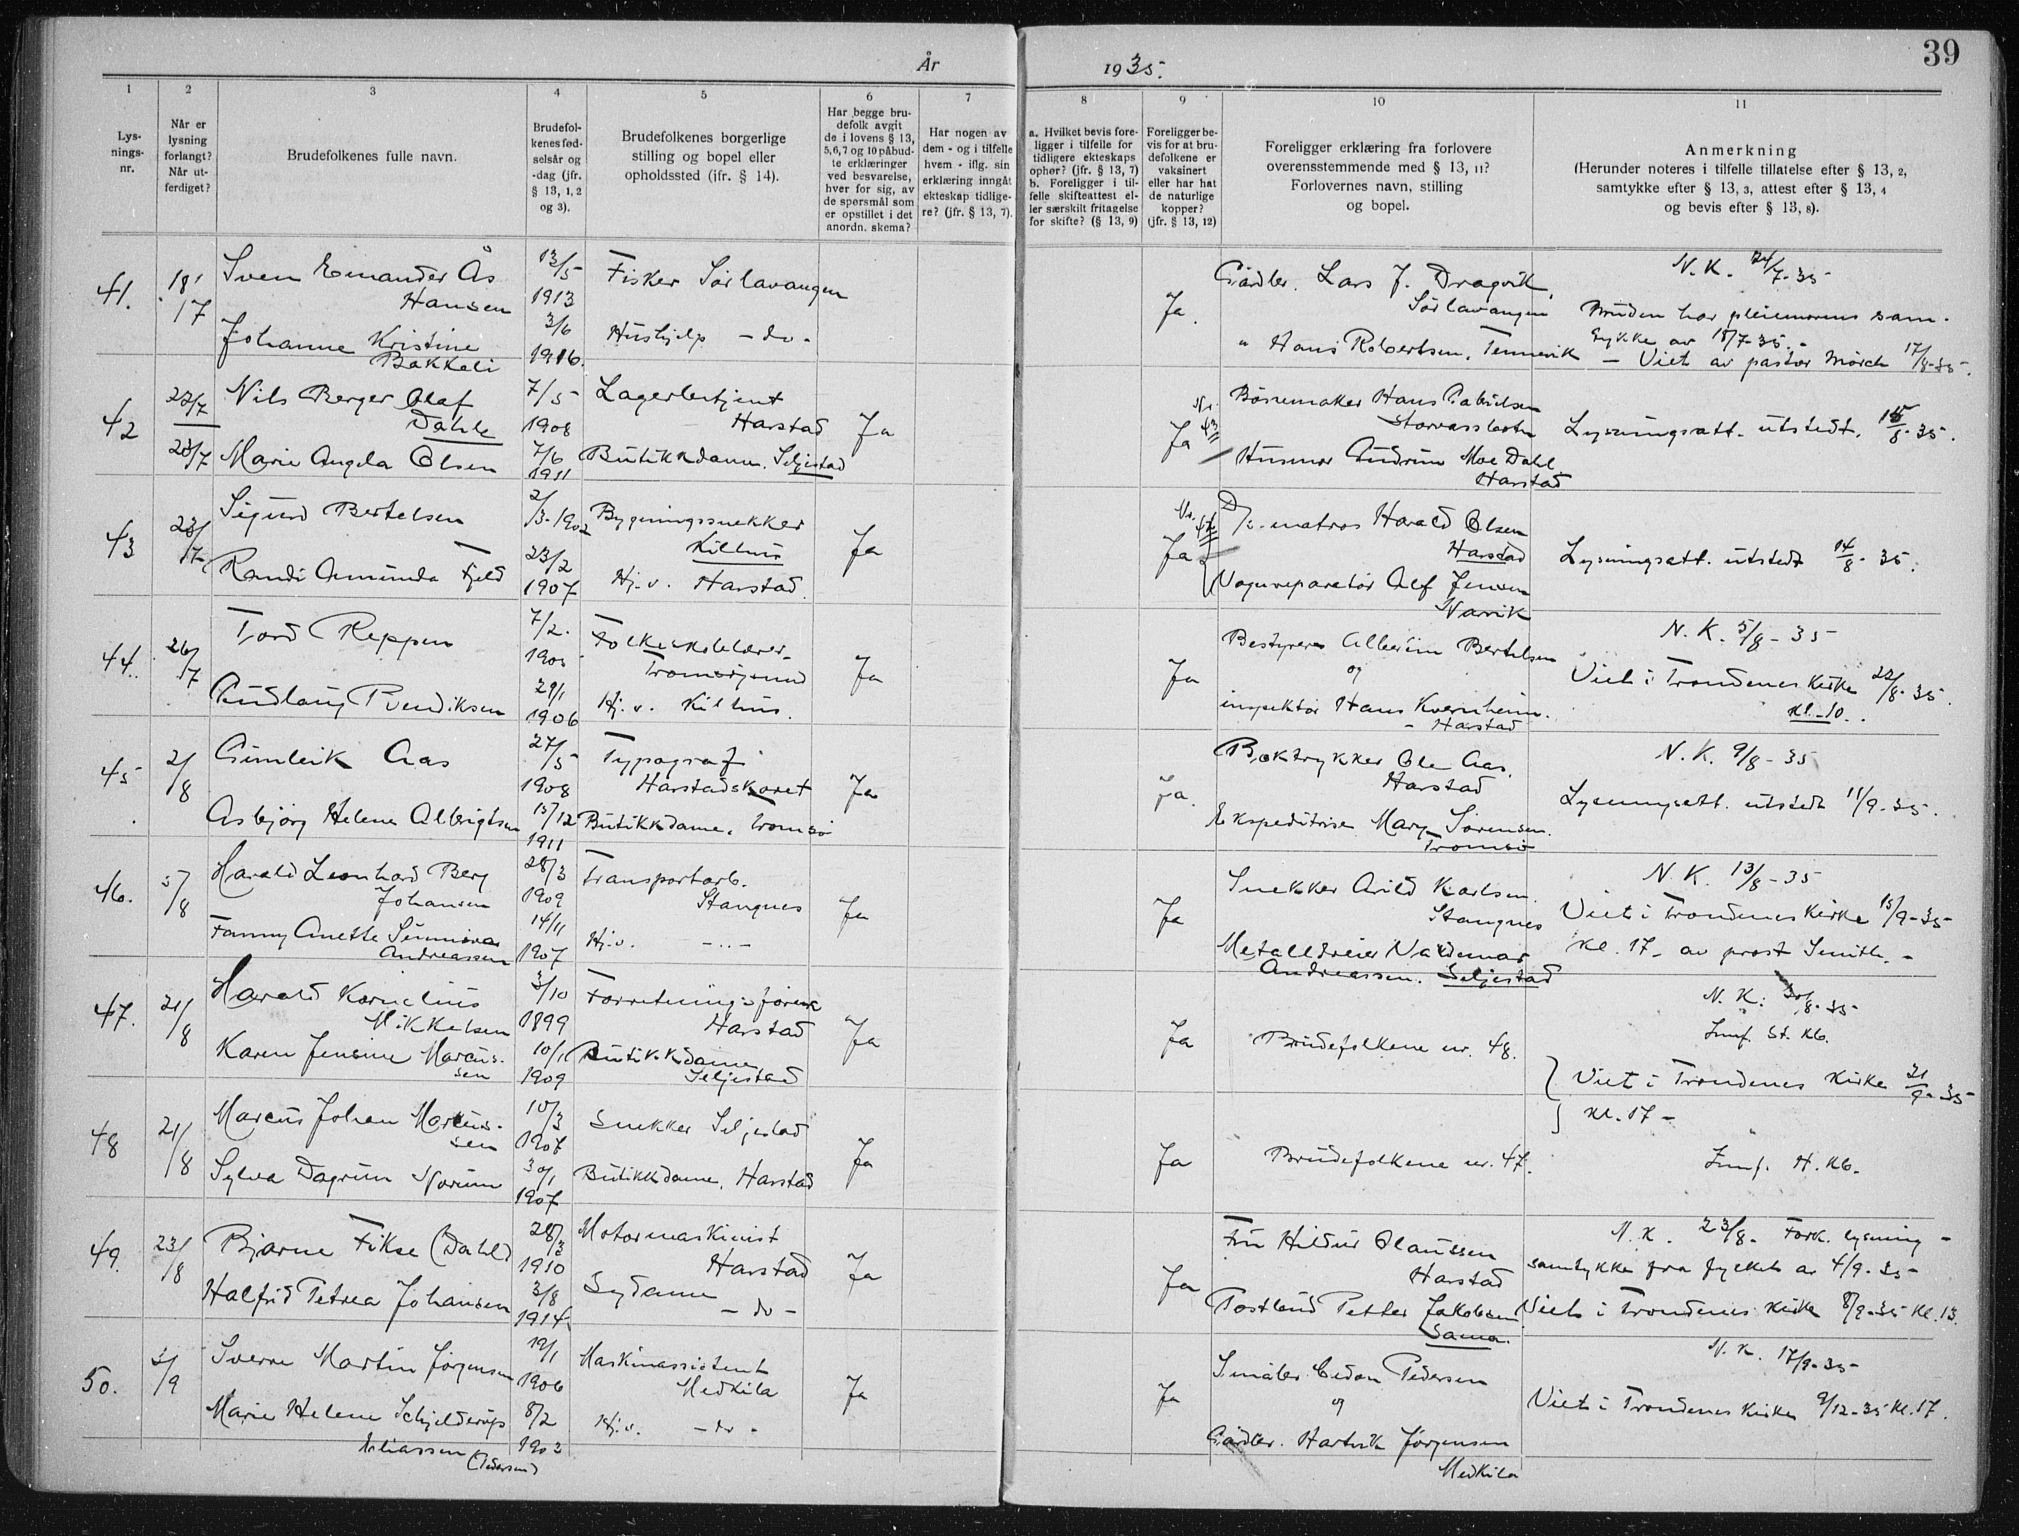 39
År 1935.
1 2 3 4 5 6 7 8 9 10 11
Lys-
nings-
nr.
Når er
lysning
forlangt?
Når ut-
ferdiget?
Brudefolkenes fulle navn.
Brudefol-
kenes fød-
selsår og
-dag (jfr.
§ 13, 1, 2
og 3).
Brudefolkenes borgerlige
stilling og bopel eller
opholdssted (jfr. § 14).
Har begge bru-
defolk avgit
de i lovens § 13,
5,6,7 og 10 påbud-
te erklæringer
ved besvarelse,
hver for sig, av
de spørsmål som
er opstillet i det
anordn. skema?
Har nogen av
dem - og i tilfelle
hvem - iflg. sin
erklæring inngått
ekteskap tidlige-
re? (jfr. § 13, 7).
a. Hvilket bevis fore-
ligger i tilfelle for
tidligere ekteskaps
ophør? (jfr. § 13, 7)
b. Foreligger i til-
felle skifteattest el-
ler særskilt fritagelse
for skifte? (§ 13, 9)
Foreligger be-
vis for at bru-
defolkene er
vaksinert
eller har hat
de naturlige
kopper?
(jfr. § 13, 12)
Foreligger erklæring fra forlovere
overensstemmende med § 13, 11?
Forlovernes navn, stilling
og bopel.
Anmerkning
(Herunder noteres i tilfelle tillatelse efter § 13, 2,
samtykke efter § 13, 3, attest efter § 13, 4
og bevis efter § 13, 8).
41. 18/7
Sven Emander Ås
Hansen
13/5
1913
Fisker Sørlavangen
Johanne Kristine
Bakkeli
3/6
1916.
Hushjelp - do -
Ja.
Gårdbr. Lars J. Dragvik,
Sørlavangen
" Hans Robertsen, Tennevik
N. K. 24/7-35
Bruden har pleiemorens sam-
tykke av 18/7-35.
- Viet av pastor Mörch 17/8-35.
42 22/7
23/7
Nils Berger Olaf
Dahle
7/5
1908
Lagerbetjent
Harstad
Ja
Marie Angela Olsen
7/6
1911
Butikkdame, Seljestad
Ja
Børsemaker Hans
Husmor Gudrun Moe Dahl
Harstad
Lysningsatt. utstedt. 15/8-35.
43 23/7
Sigurd Bertelsen
2/3-1902
Bygningssnekker
Kilhus
Ja
Randi Amunda Fjeld
23/2
1907
Hj.v. Harstad.
Ja
D/s. matros Harald Olsen
Harstad
Vognreparatør Alf Jensen
Narvik
Lysningsatt. utstedt 14/8-35.
44. 26/7
Tord Reppen
7/2.
1905
Folkeskolelærer
Tromsøysund
Ja
Gudlaug Bendiksen
29/1
1906
Hj.v. Kilhus.
Ja
Bestyrer Bertelsen
og
inspektør Hans Kvernheim.
- Harstad
N. K. 5/8-35
Viet i Trondenes Kirke 22/8-35.
kl. 10.
45 2/8
Gunleik Aas
27/5
1908
Typograf
Harstadskoret
Ja
Asbjørg Helene Albrigtsen
15/12
1911
Butikkdame, Tromsø
Ja.
Boktrykker Ole Aas.
Harstad
Ekspeditrise Mary Sørensen.
Tromsø
N. K. 9/8-35
Lysningsatt. utstedt 11/9-35.
46. 5/8
Harald Leonhard Berg
Johansen
28/3
1909
Transportarb.
Stangnes
Ja
Fanny Anette Sunniva
Andreassen
14/11
1907
Hj.v. - " -
Ja
Snekker Arild Karlsen.
Stangnes
Metalldreier Valdemar
Andreassen. Seljestad
N. K. 13/8-35
Viet i Trondenes Kirke 15/9-35
kl. 17 - av prost Smith. -
47. 21/8
Harald Kornelius
Mikkelsen
3/10
1899
Forretningsfører
Harstad
Ja
Karen Jensine Marcus-
sen
10/1
1909
Butikkdame
Seljestad
Ja
Brudefolkene nr. 48.
N. K. 30/8-35
Innf. St. Kb.
Viet i Trondenes Kirke 21/9-35
kl. 17 -
48 21/8
Marcus Johan Marcus-
sen
10/3
Snekker Seljestad
Ja
Sylva Dagrun Norum
30/1
1907
Butikkdame, Harstad
Ja
Brudefolkene nr. 47.
Innf. H. Kb.
49. 23/8
Bjarne Fikse (Dahl)
28/3
1910
Motormaskinist
Harstad
Ja
Halfrid Petrea Johansen
3/8
1914.
Sydame
- do -
Ja
Fru Hildur Olaussen
Harstad
Postbud Petter Jakobsen
Sama.
N. K. 23/8. Fork. lysning -
samtykke fra fylket av 4/9-35
Viet i Trondenes Kirke 8/9-35 kl. 13.
50. 3/9
Sverre Martin Jørgensen
19/1
1906
Maskinassistent
Medkila
Ja
Marie Helene Schjelderup
Eliassen (Pedersen)
8/2
1903
Hj.v. - do -
Ja
Småbr. Pedersen
og
Gårdbr. Hartvik Jørgensen
Medkila
N. K. 17/9-35
Viet i Trondenes Kirke 9/12-35 kl. 17.